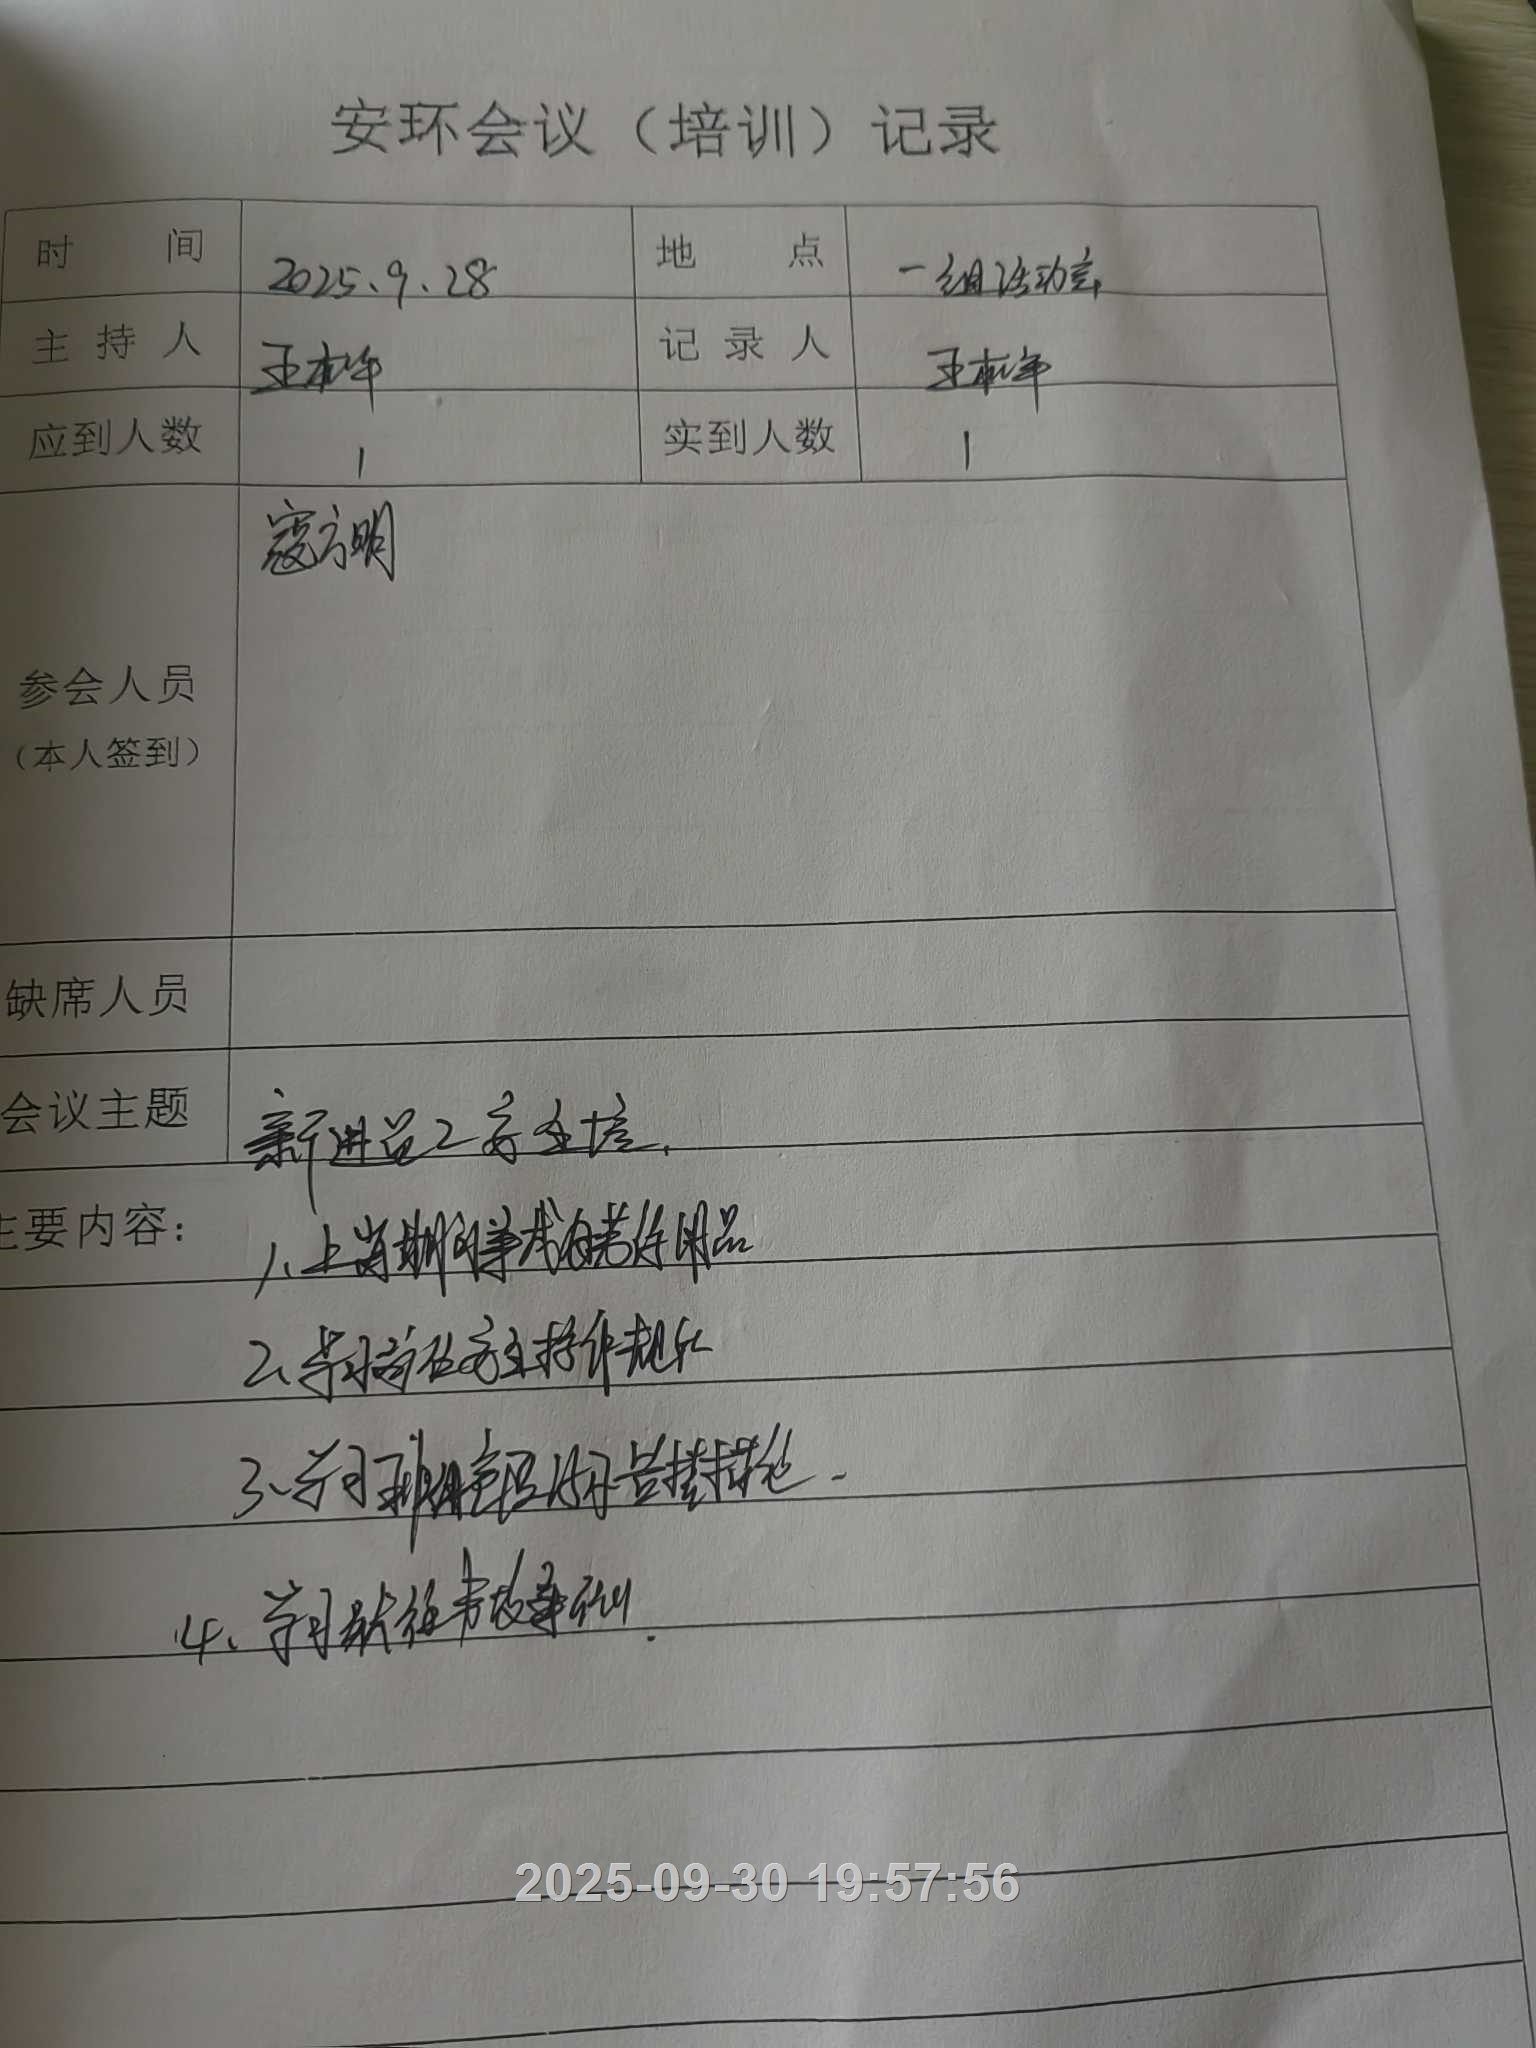 安环会议（培训）记录
时 间 2025.9.28 地 点 一组活动室
主 持 人 王 记 录 人 王
应到人数 1 实到人数 1
寇方明
参会人员
（本人签到）
缺席人员
会议主题 新进员工安全培
主要内容：
1、上岗期间 劳保用品
2、学习岗位安全操作规
3、学习班组
4、学习 事故
2025-09-30 19:57:56